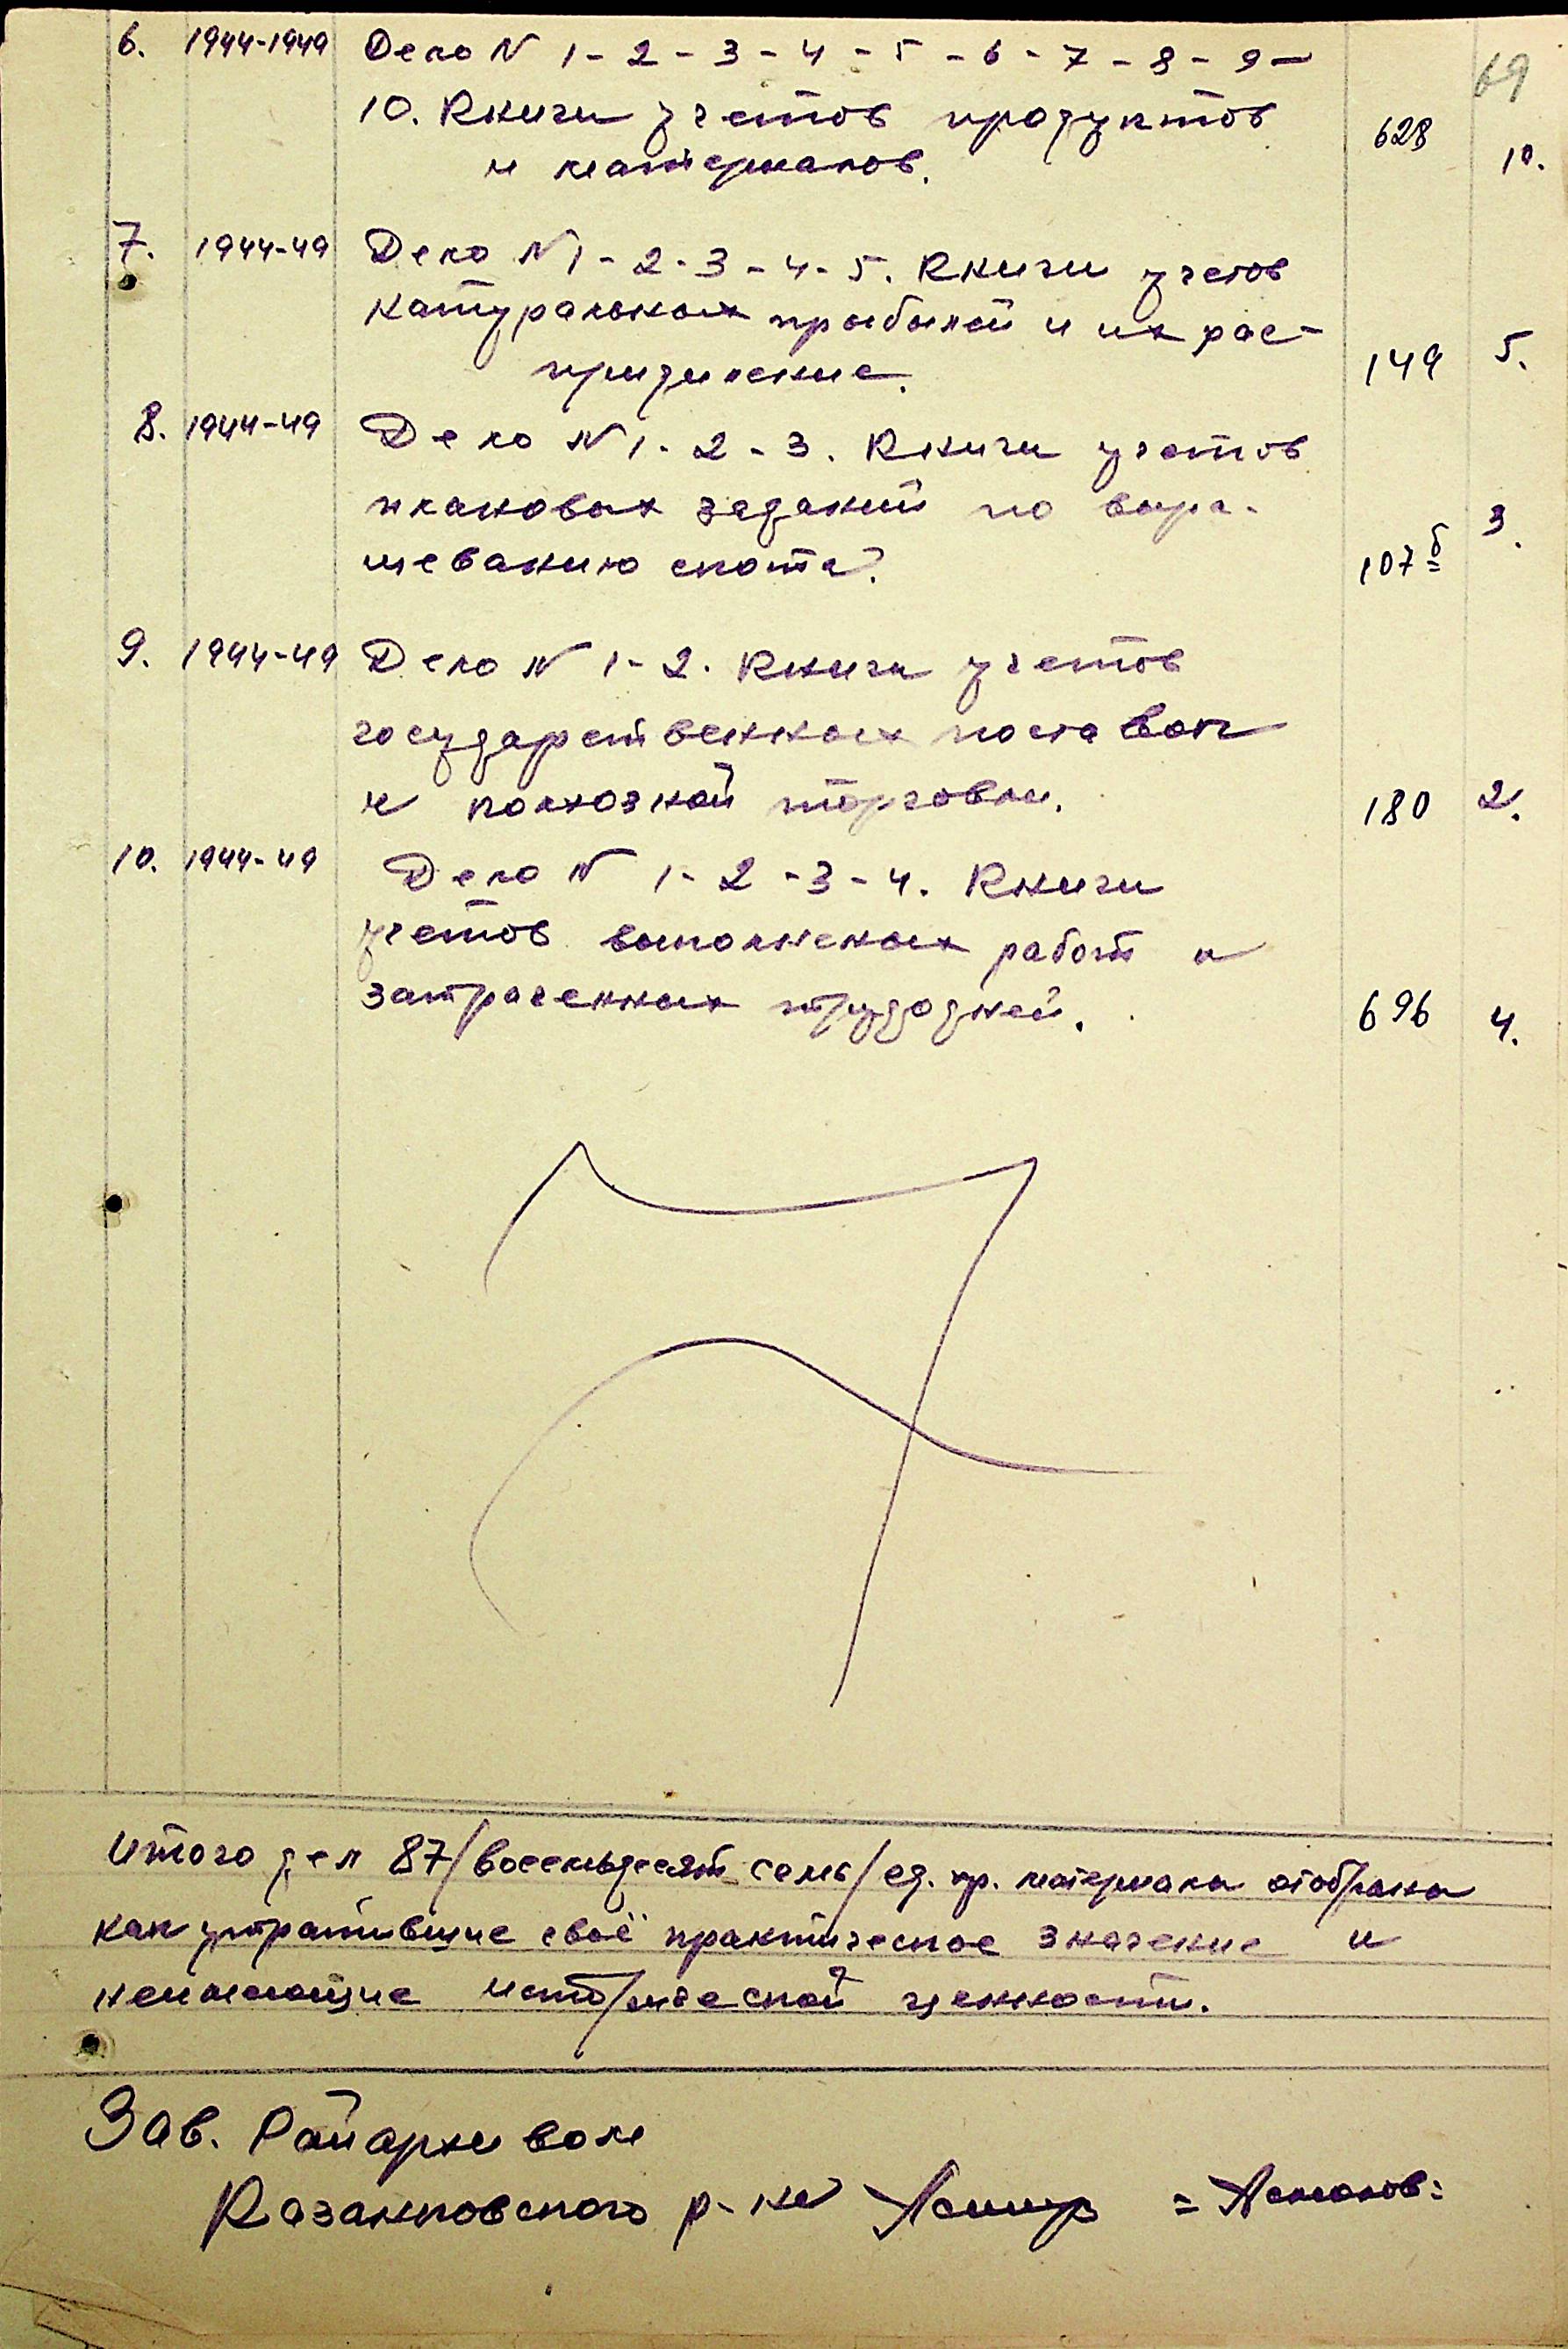 69
6. 1944-1949 Дело N 1-2-3-4-5-6-7-8-9-
10. Книги учетов продуктов 628
и материалов. 10.
7. 1944-49 Дело N 1-2-3-4-5. Книги учетов
натуральных прибылей и их рас-
придиление. 149 5.
8. 1944-49 Дело N 1-2-3. Книги учетов
плановых заданий по выра-
щеванию скота. 107б 3.
9. 1944-49 Дело N 1-2. Книги учетов
государственных поставок
и колхозной торговли. 180 2.
10. 1944-49 Дело N 1-2-3-4. Книги
учетов выполненых работ и
затраченных трудодней. 696 4.
Итого дел 87/восемьдесят семь/ед. хр. материала отобраны
как утратившие своё практическое значение и
неимеющие исторической ценности.
Зав. Райархивом
Казанковского р-на =Асманов=